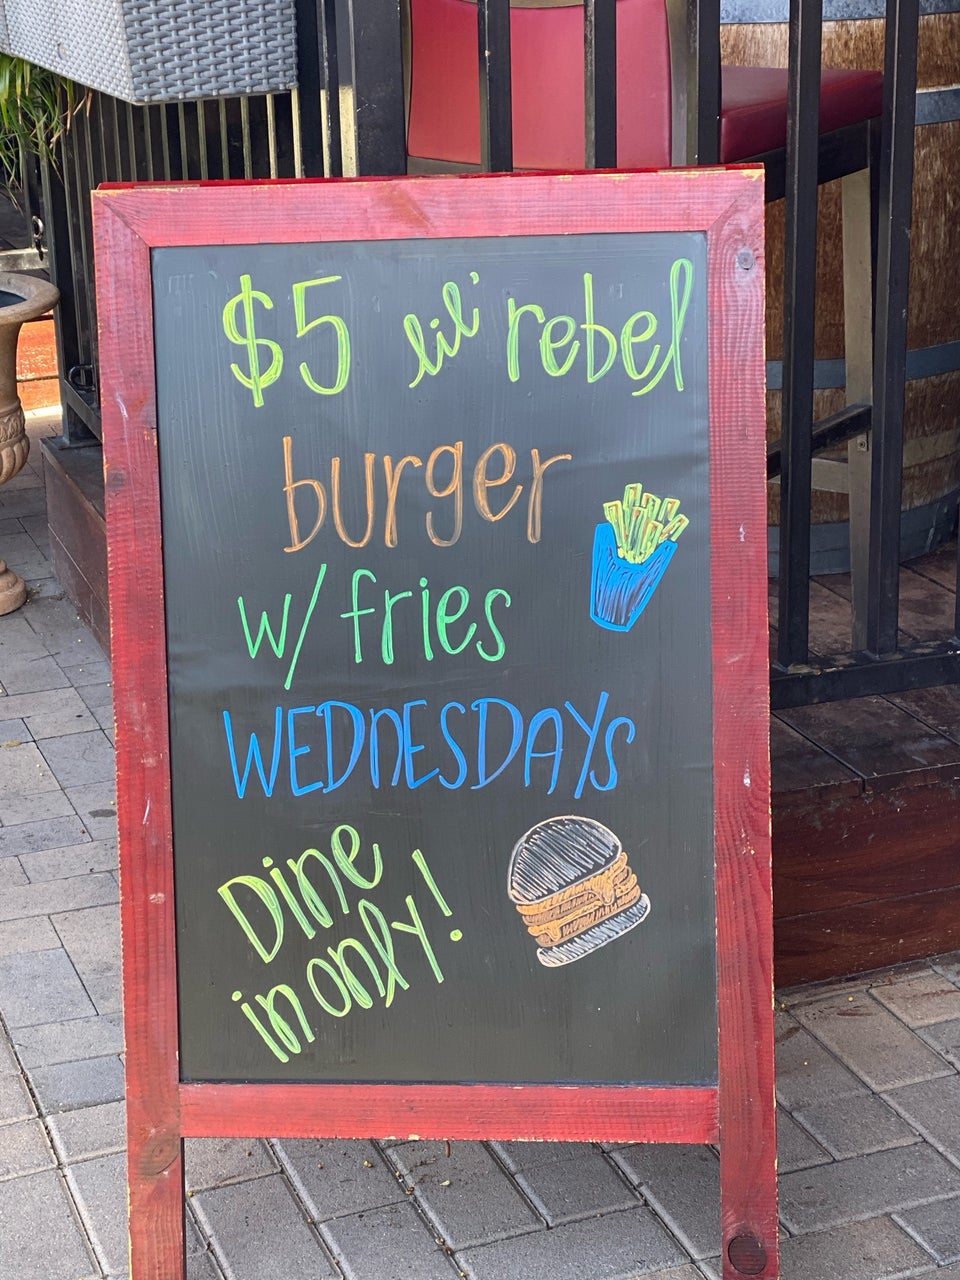 $5 lil' rebel
burger
w/ fries
WEDNESDAYS
Dine
in only!